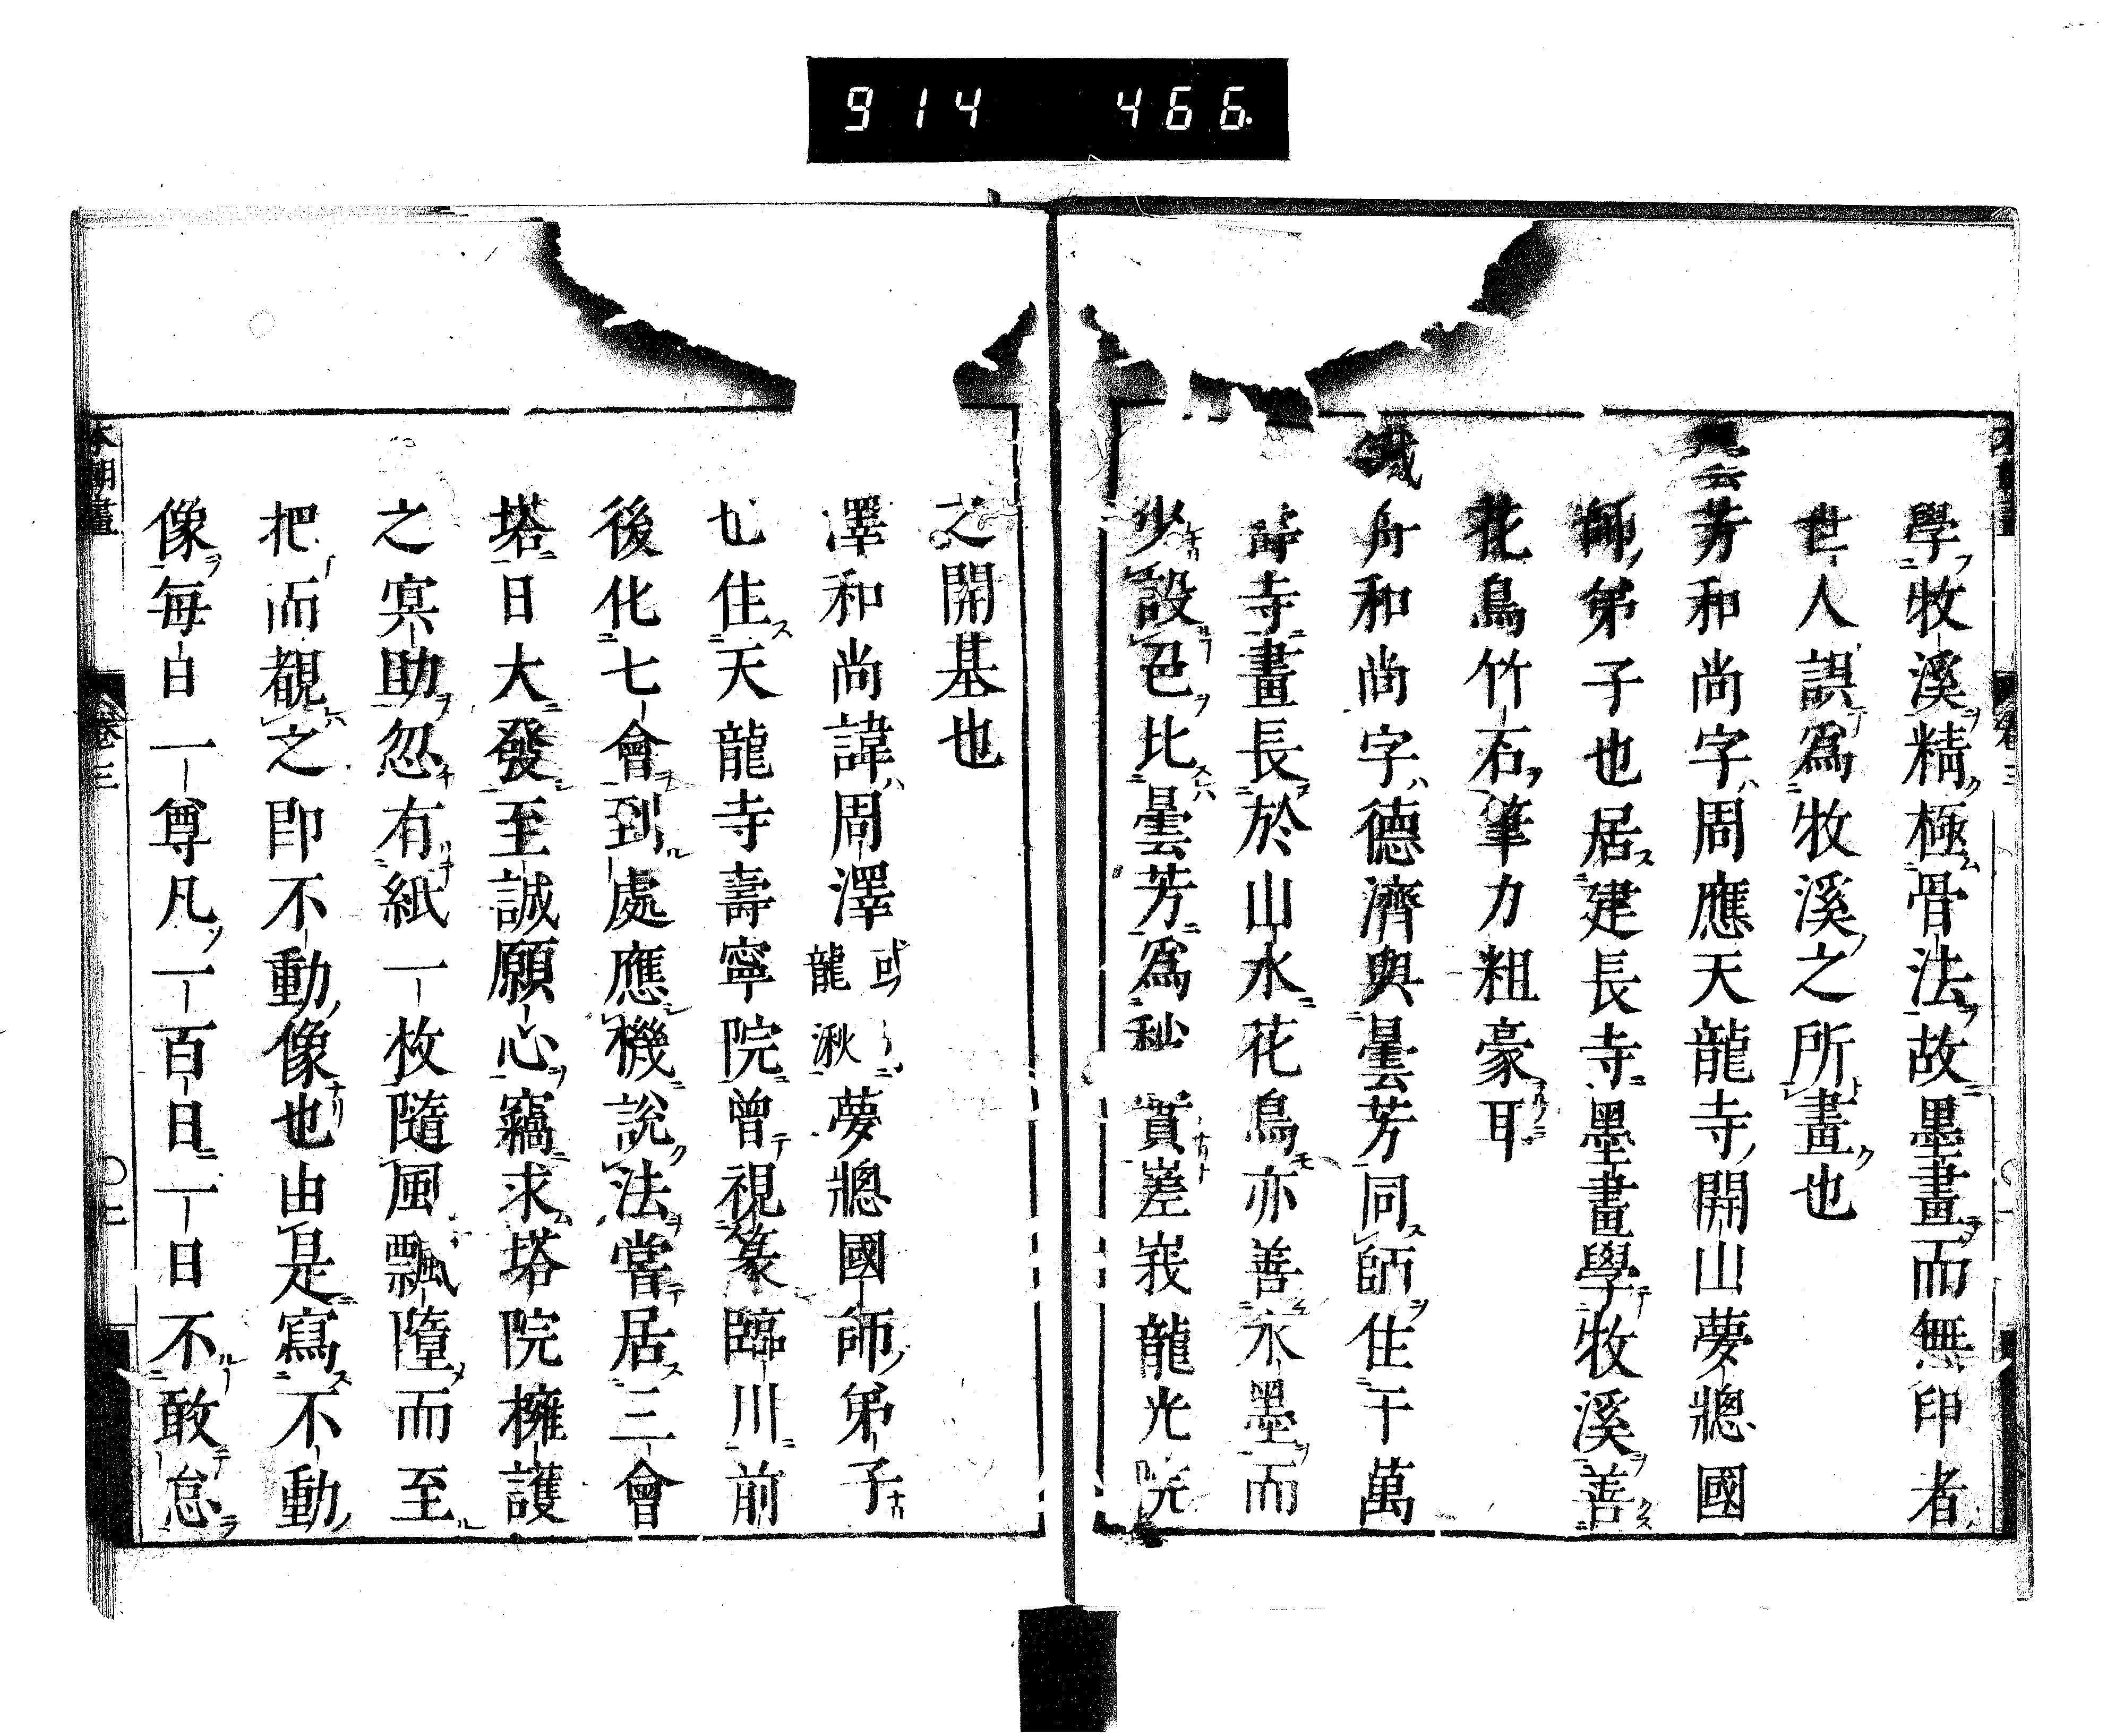 914 466.
學牧溪精極骨法故墨畫而無印者
世人誤爲牧溪之所畫也
曇芳和尚字周應天龍寺開山夢窻國
師弟子也居建長寺墨畫學牧溪善
花鳥竹石筆力粗豪耳
鐵舟和尚字德濟與曇芳同師住于萬
壽寺畫長於山水花鳥亦善水墨而
少設色比曇芳爲秒實嵳峩龍光院
之開基也
澤和尚諱周澤或龍湫夢窻國師弟子
也住天龍寺壽寧院曾視篆臨川前
後化七會到處應機說法嘗居三會
塔日大發至誠願心竊求塔院擁護
之冥助忽有紙一枚隨風飄墮而至
把而覩之卽不動像也由是寫不動
像每日一尊凡一百日一日不敢怠
本朝畫
卷三
〇二